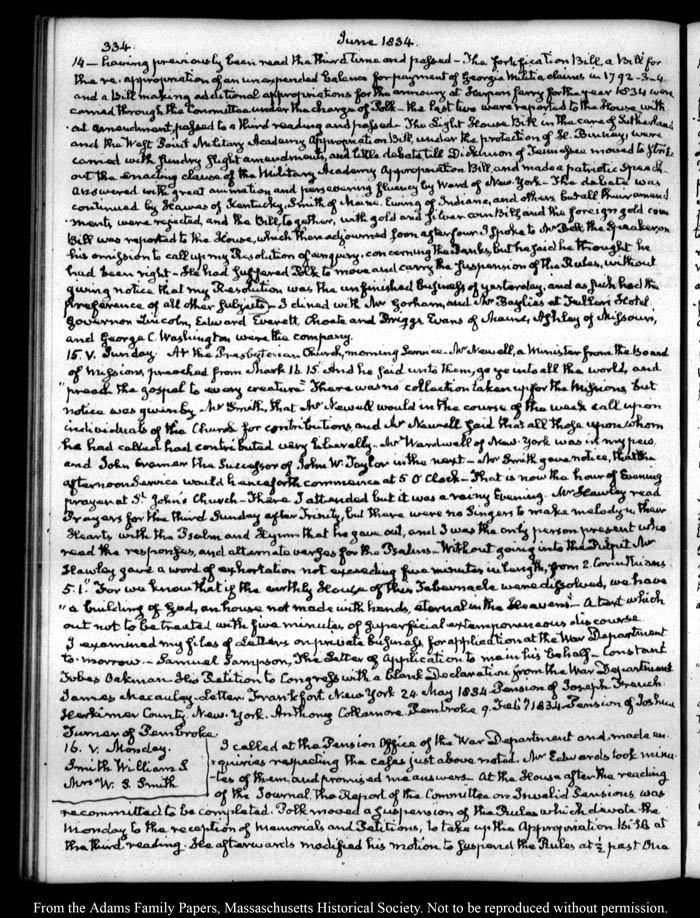 334.
June 1834.
14 — having previously been read the third time and passed — The fortification Bill, a Bill for
the re. appropriation of an unexpended balance for payment of Georgia Militia claims in 1792-3-4
and a Bill making additional appropriations for the armoury at Harpers ferry for the year 1834 were
carried through the Committee under the charge of Polk — the last two were reported to the House with
out amendment, passed to a third reading and passed — The Light House Bill in the care of Sutherland
and the West Point Military Academy Appropriation Bill, under the protection of were
carried with sundry slight amendments, and little debate till Dickinson of Tennessee moved to strike
out the enacting clause of the Military Academy Appropriation Bill, and made a patriotic speech
answered with great animation and persevering fluency by Ward of New York — The debate was
continued by Hawes of Kentucky, Smith of Maine, Ewing of Indiana, and others but all their amend
ments, were rejected, and the Bill, together, with gold and silver coin Bill and the foreign gold coin
Bill was reported to the House, which then adjourned soon after four. I spoke to Mr Bell the Speaker, on
his omission to call up my Resolution of enquiry concerning the Banks, but he said he thought he
had been right — He had suffered Polk to move and carry the suspension of the Rules, without
giving notice that my Resolution was the unfinished business of yesterday, and as such had the
preference of all other subjects — I dined with Mr Gorham, and Mr Baylies at Fuller's Hotel.
Governor Lincoln, Edward Everett, Choate and Briggs, Evans of Maine, Ashley of Missouri,
and George C. Washington were the company.
15. V. Sunday. At the Presbyterian Church, morning service. Mr Newell, a Minister from the Board
of Missions, preached from Mark 16. 15. And he said unto them, go ye into all the world, and
"preach the gospel to every creature" There was no collection taken up for the Missions, but
notice was given by Mr Smith, that Mr Newell would in the course of the week call upon
individuals of the Church for contributions, and Mr Newell said that all those upon whom
he had called had contributed very liberally. Mr Wardwell of New-York was in my pew,
and John Cramer the successor of John W. Taylor in the next — Mr Smith gave notice, that the
afternoon service would henceforth commence at 5 O'Clock — That is now the hour of Evening
prayer at St John's Church — There I attended but it was a rainy Evening. Mr Hawley read
Prayers for the third Sunday after Trinity, but there were no Singers to make melody in their
Hearts with the Psalm and Hymn that he gave out, and I was the only person present who
read the responses, and alternate verses for the Psalms. Without going into the Pulpit Mr
Hawley gave a word of exhortation not exceeding five minutes in length, from 2. Corinthians
5. 1. "For we know that if the earthly House of this Tabernacle were dissolved, we have
"a building of God, an house not made with hands, eternal in the Heavens" — A text which
out not to be treated with five minutes of superficial extemporaneous discourse
I examined my files of Letters on private business for application at the War Department
to-morrow. — Samuel Sampson, The Letter of Application to me in his behalf — Constant
Fobes Oakman. His Petition to Congress with a blank Declaration from the War Department
James Macauley. Letter. Frankfort New York 24 May 1834 Pension of Joseph French.
Herkimer County, New-York. Anthony Collamore Pembroke 9. Feby 1834. Pension of Joshua
Turner of Pembroke.
16. V. Monday.
Smith William S
Mrs W. S. Smith
I called at the Pension Office of the War Department and made en-
quiries respecting the cases just above noted. Mr Edwards took minu-
tes of them, and promised me answers — At the House after the reading
of the Journal, the Report of the Committee on Invalid Pensions, was
recommitted to be completed. Polk moved a suspension of the Rules which devote the
Monday to the reception of Memorials and Petitions, to take up the Appropriation Bills at
the third reading. He afterwards modified his motion to suspend the Rules at ½ past One
From the Adams Family Papers, Massachusetts Historical Society. Not to be reproduced without permission.